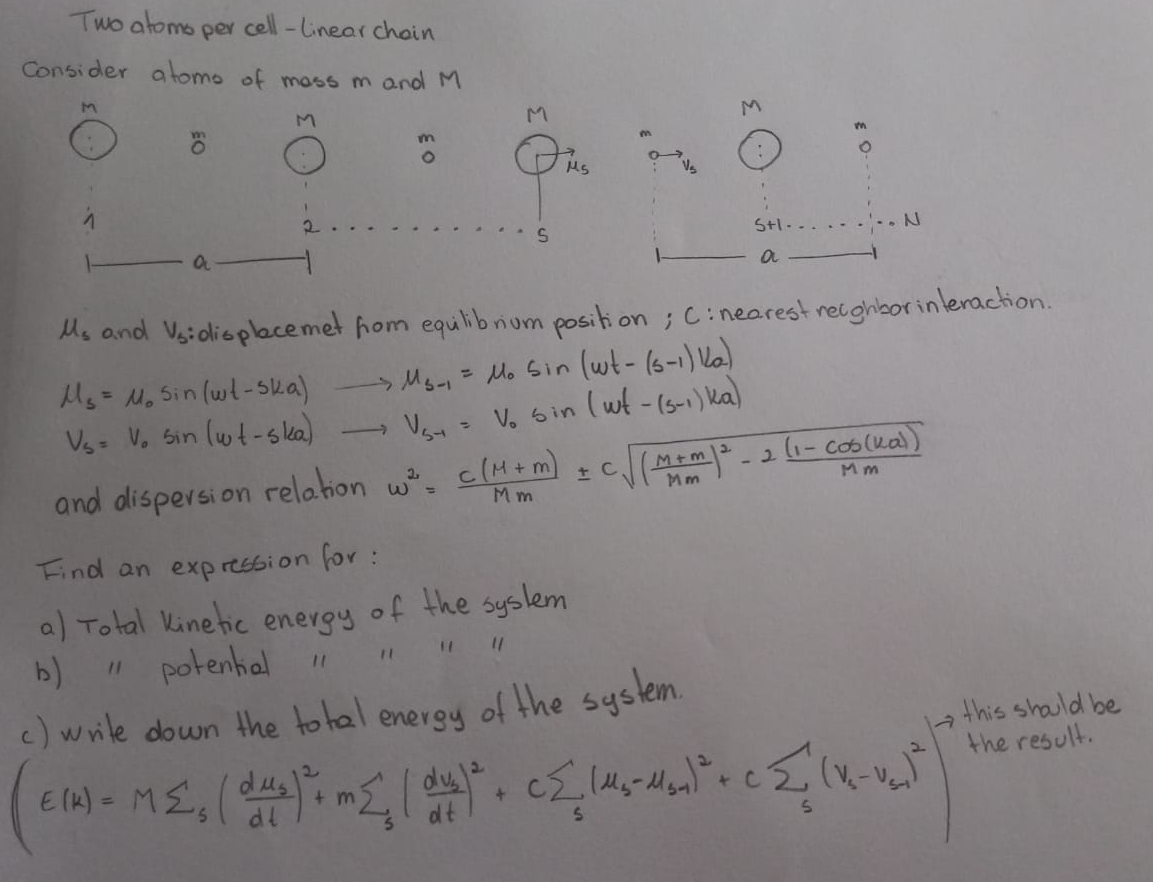 Two atoms per cell - linear chain
Consider atoms of mass m and M
M m M m M μs m Vs M m
1 2 . . . . . . . . . . s s+1. . . . . . . . . N
a a
μs and Vs: displacemet from equilibrium position ; C: nearest neighbor interaction.
μs = μ₀ sin(wt - ska) → μs-1 = μ₀ sin (wt - (s-1)ka)
Vs = V₀ sin (wt - ska) → Vs-1 = V₀ sin (wt - (s-1)ka)
and dispersion relation ω² = C(M+m)/Mm ± C√((M+m/Mm)² - 2 (1 - cos(ka))/Mm)
Find an expression for :
a) Total kinetic energy of the system
b) " potential " " " "
c) Write down the total energy of the system.
(E(k) = M Σs (dμs/dt)² + m Σs (dvs/dt)² + C Σs (μs - μs-1)² + C Σs (Vs - Vs-1)²) → this should be
the result.